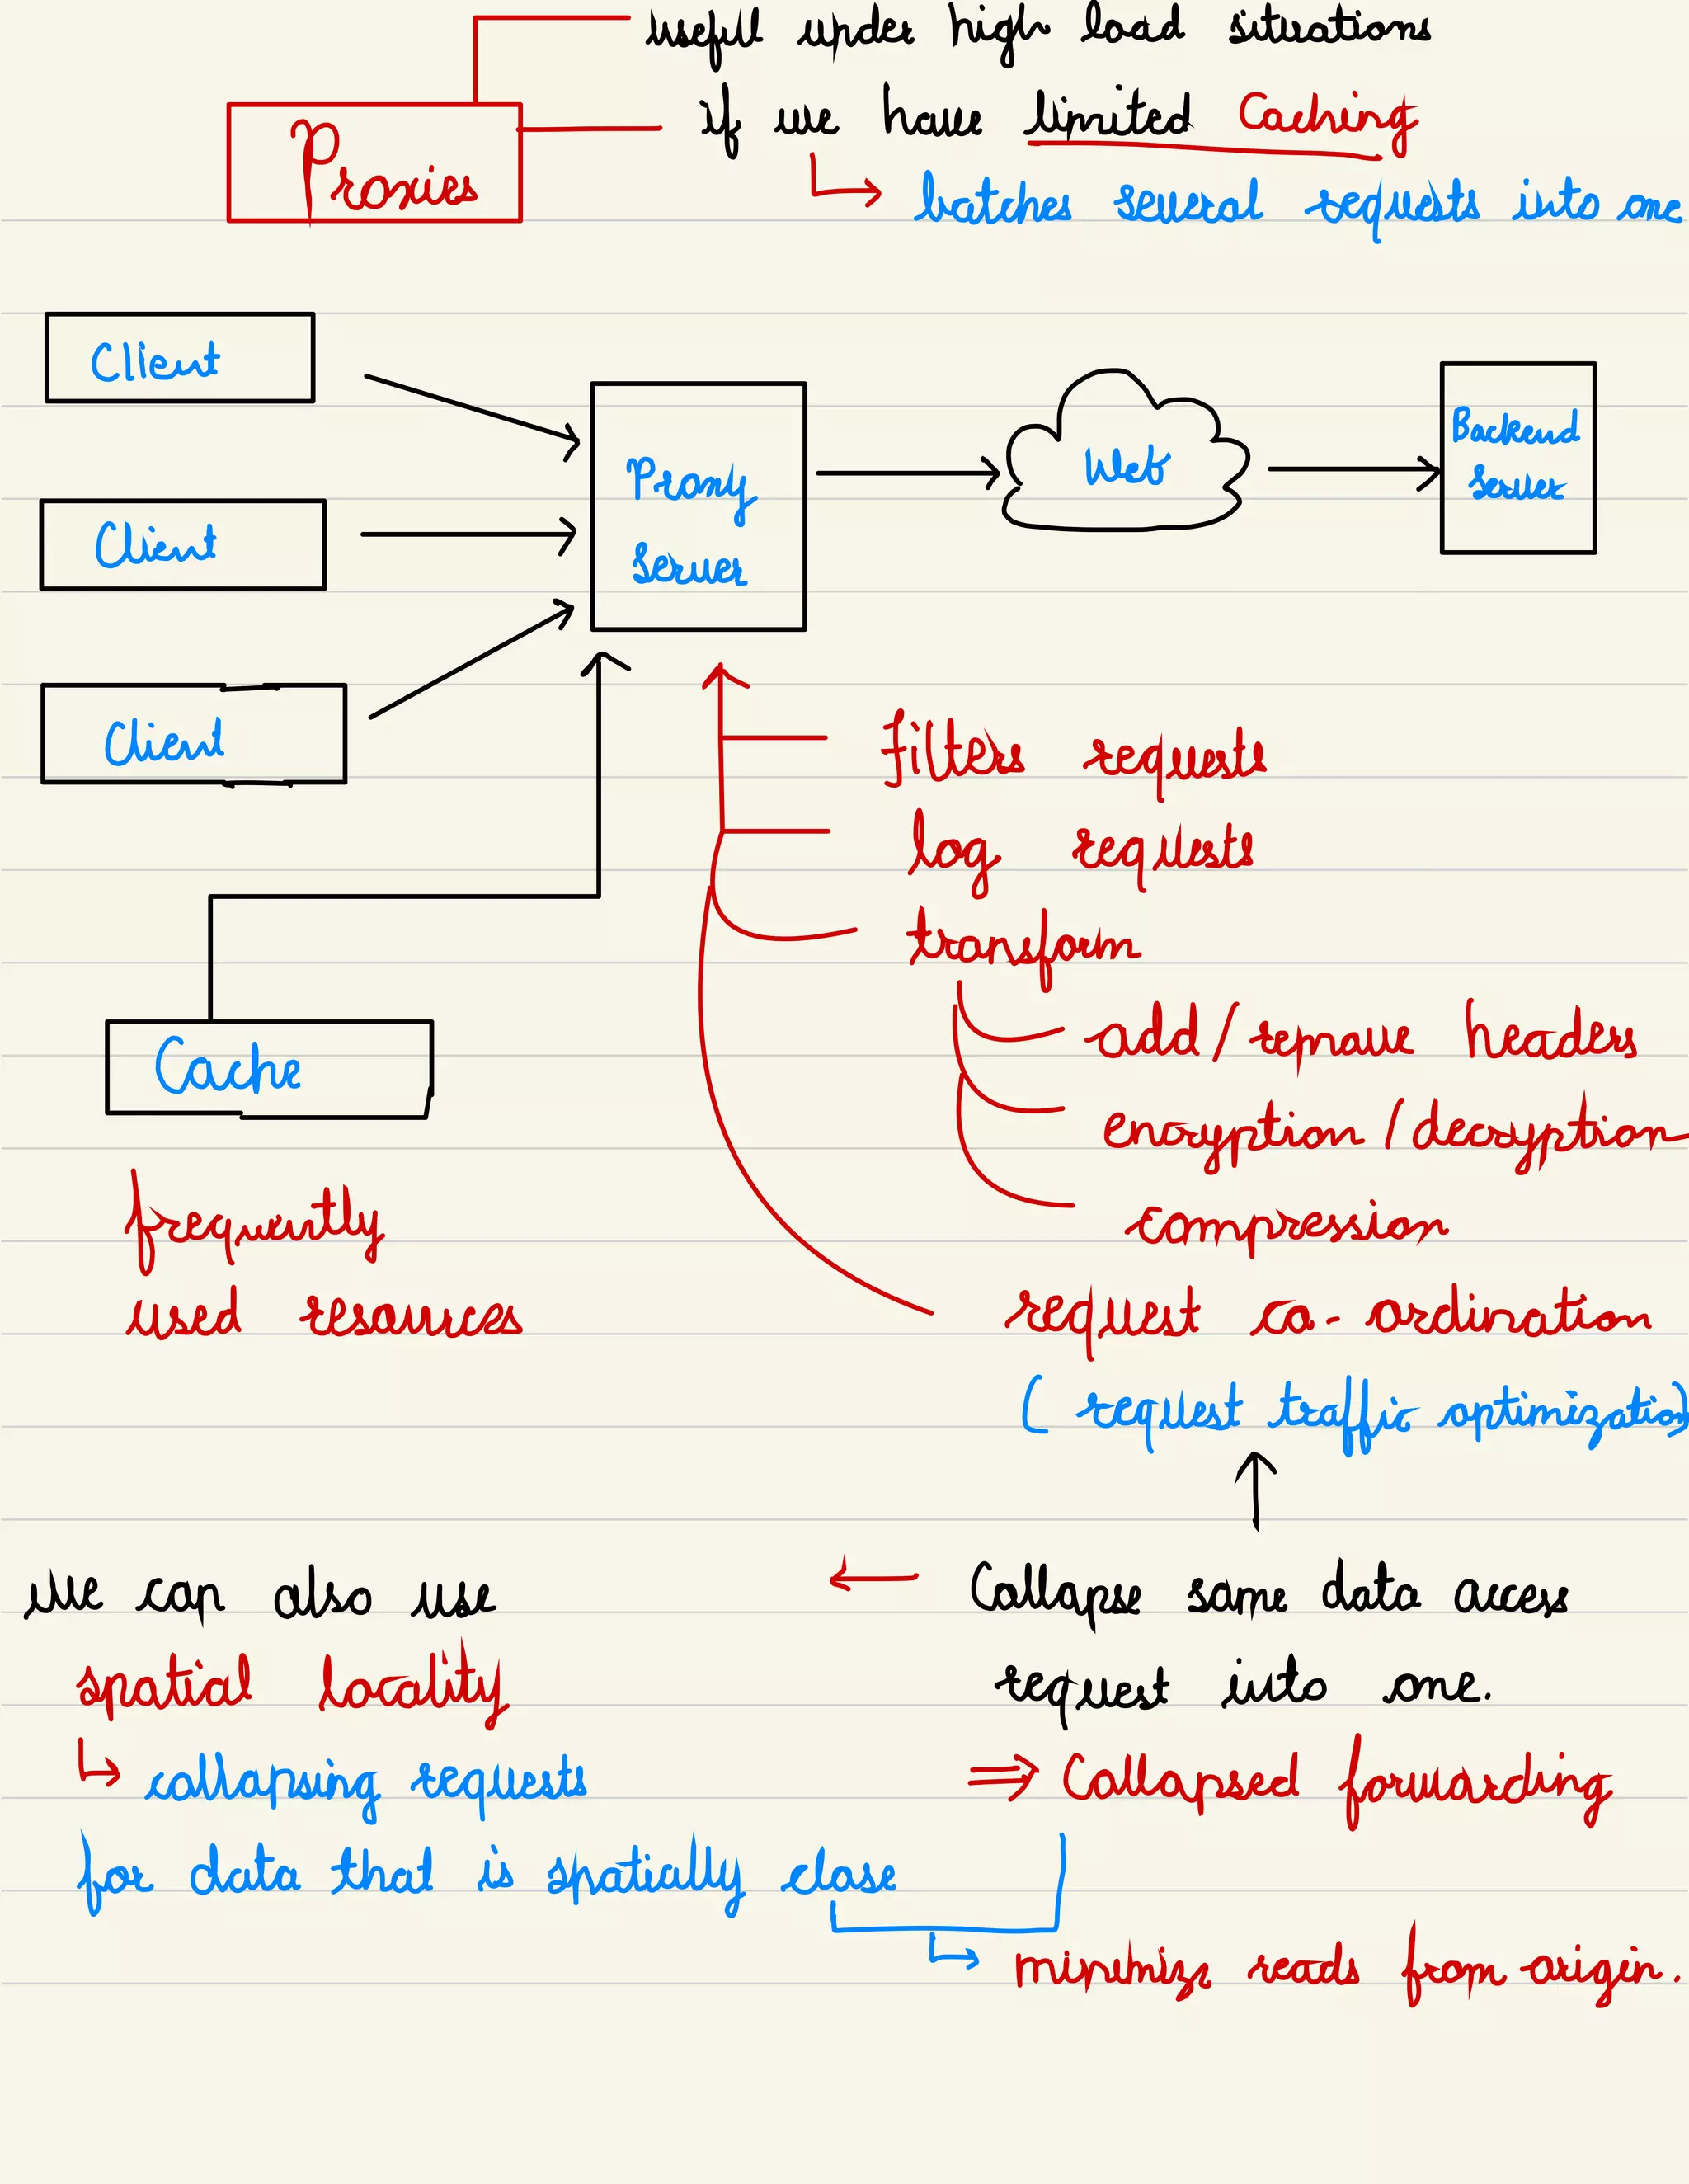 useful under high load situations
Proxies
if we have limited Caching
batches several requests into one
Client
Client
Client
Proxy
Server
Web
Backend
Server
filters requests
log requests
transform
add/remove headers
encryption/decryption
compression
Cache
frequently
used resources
request co-ordination
(request traffic optimization)
Collapse same data access
request into one.
⇒ Collapsed forwarding
we can also use
spatial locality
collapsing requests
for data that is spatially close
minimize reads from origin.